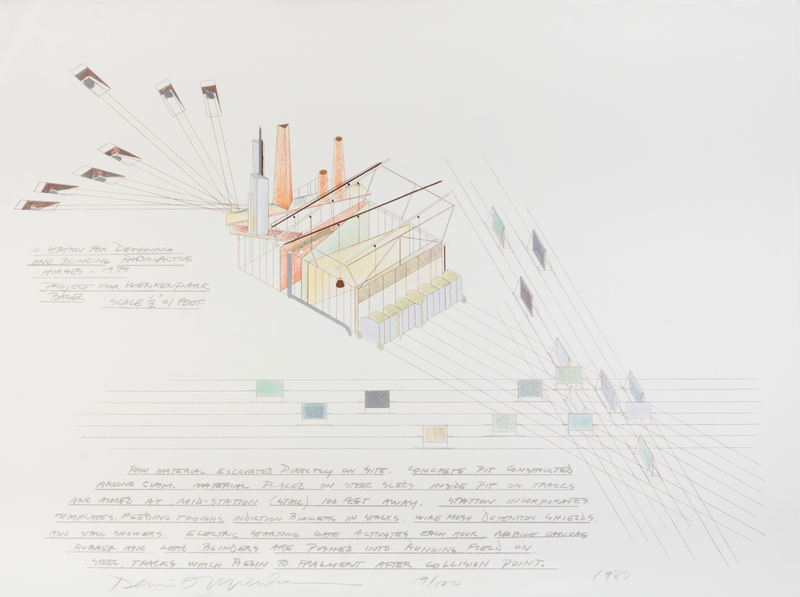 A STATION FOR DETAINING
AND BLINDING RADIO-ACTIVE
HORSES. 1979
PROJECT FOR WENKENPARK
BASEL SCALE 1/2" = 1 FOOT.
RAW MATERIAL EXCAVATED DIRECTLY ON SITE. CONCRETE PIT CONSTRUCTED
AROUND CLAIM. MATERIAL PLACED ON STEEL SLEDS INSIDE PIT ON TRACKS
AND AIMED AT MID-STATION (STALL) 100 FEET AWAY. STATION INCORPORATES
TEMPLATES, FEEDING TROUGHS, INDUCTION BLOWERS IN STACKS. WIRE MESH DETENTION SHIELDS.
AND STALL SHOWERS. ELECTRIC STARTING GATE ACTIVATES EACH HOUR. MOBILE CANVAS
RUBBER AND LEAD BLINDERS ARE PUSHED INTO RUNNING FIELD ON
STEEL TRACKS WHICH BEGIN TO FRAGMENT AFTER COLLISION POINT.
Dennis Oppenheim 19/100 1980